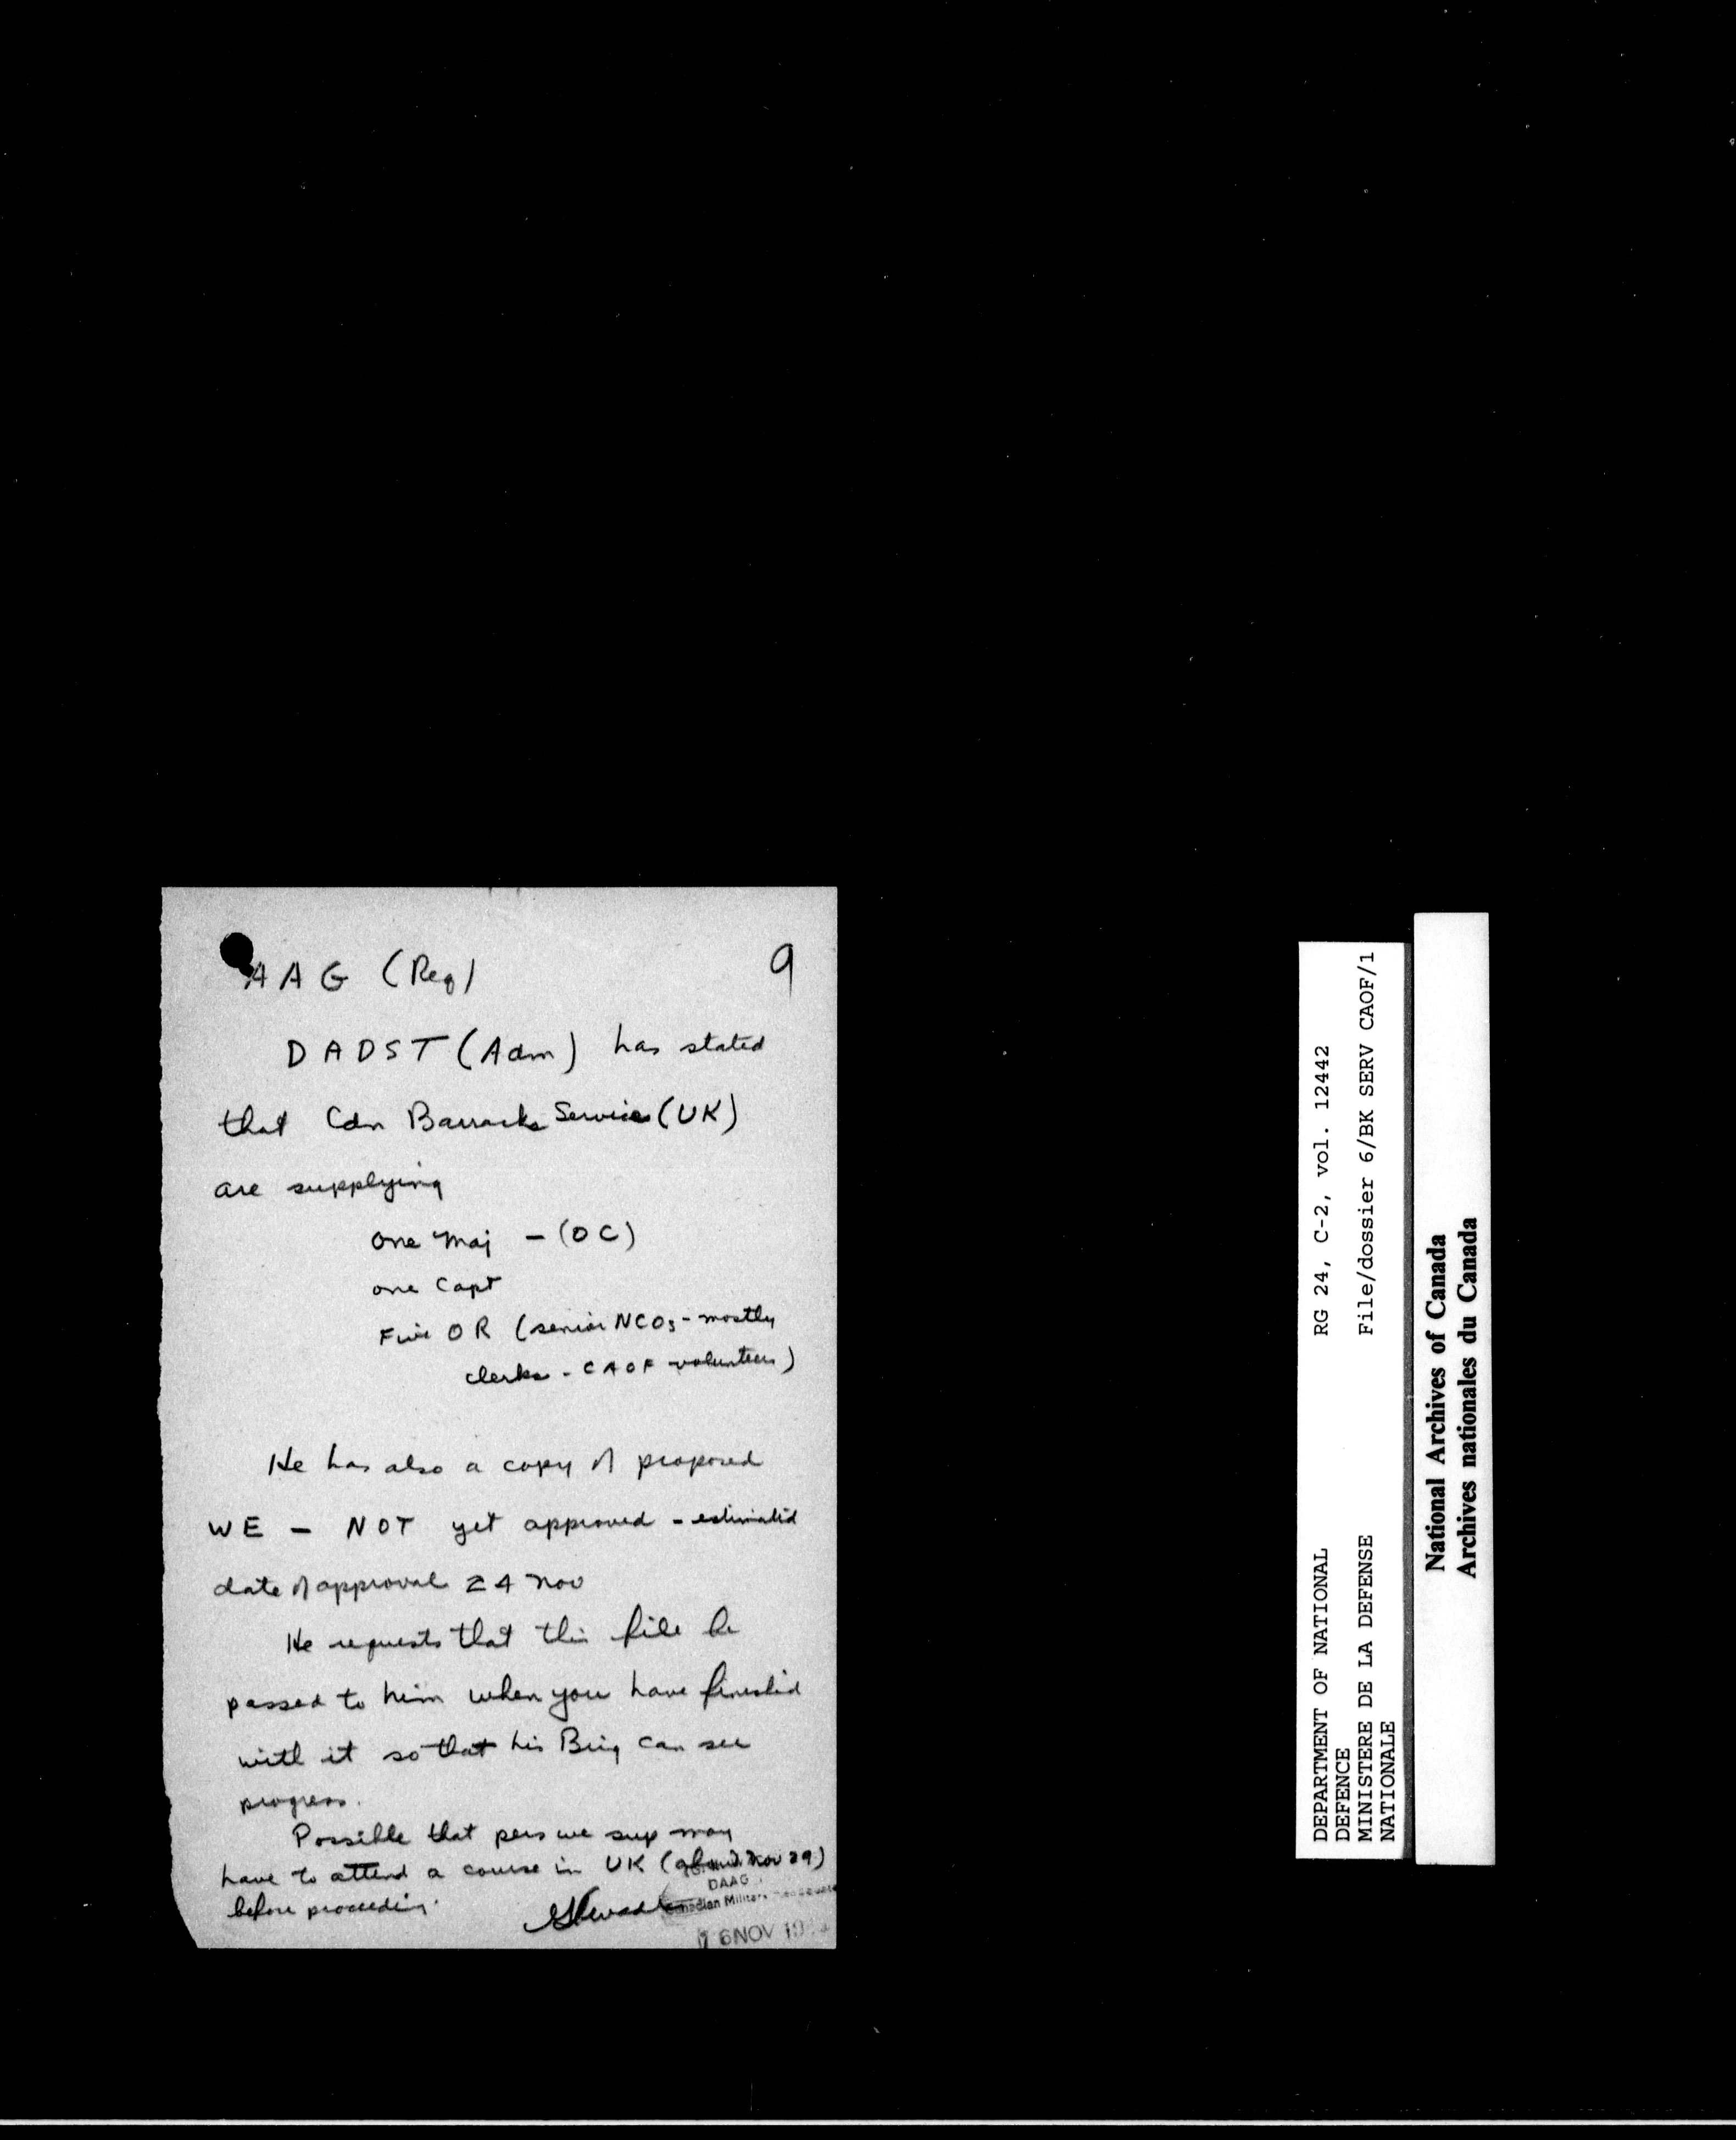 AAG (Req)
9
DADST (Adm) has stated
that Cdn Barracks Service (UK)
are supplying
one Maj - (OC)
one Capt
Five OR (senior NCOs - mostly
clerks - CAOF volunteers)
He has also a copy of proposed
WE - NOT yet approved - estimated
date of approval 24 Nov
He requests that this file be
passed to him when you have finished
with it so that his Brig can see
progress.
Possible that pers we sup may
have to attend a course in UK (about Nov 29)
before proceeding.
DAAG
Canadian Military Headquarters
6 NOV 19
DEPARTMENT OF NATIONAL
DEFENCE
MINISTERE DE LA DEFENSE
NATIONALE
RG 24, C-2, vol. 12442
File/dossier 6/BK SERV CAOF/1
National Archives of Canada
Archives nationales du Canada